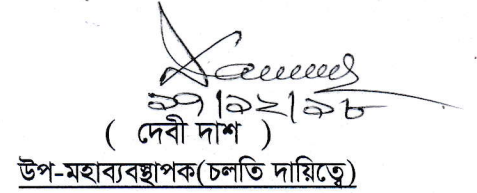 ২৭/১২/১৮
( দেবী দাশ )
উপ-মহাব্যবস্থাপক(চলতি দায়িত্বে)